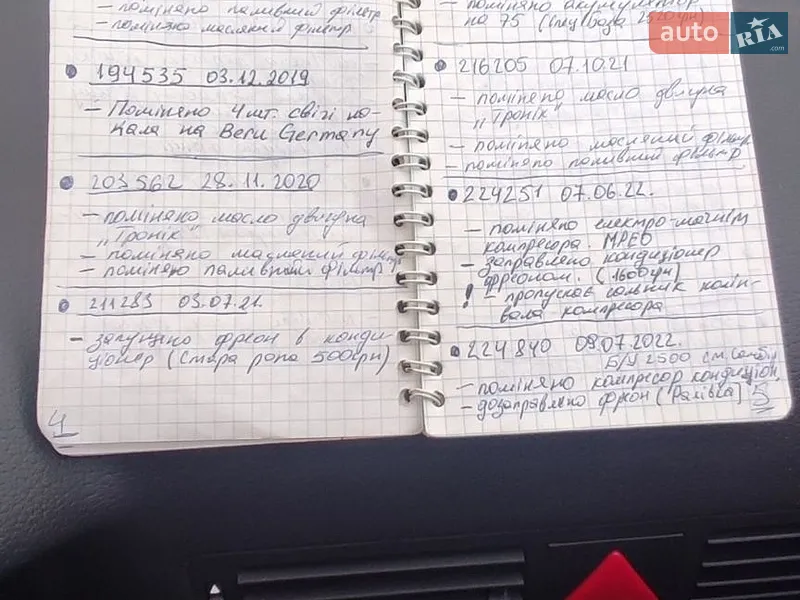 - поміняно паливний фільтр
- поміняно масляний фільтр
194535 03.12.2019
- Поміняно 4 шт. свічі накала на Beru Germany
203562 28.11.2020
- поміняно масло двигуна
"Тронік"
- поміняно масляний фільтр
- поміняно паливний фільтр
211283 03.07.21.
- запущено фреон в конди-
ціонер (Стара ропа 500грн)
4
- поміняно акумулятор
на 75 (Спец вода 2520грн)
216205 07.10.21
- поміняно масло двигуна
"Тронік"
- поміняно масляний фільтр
- поміняно паливний фільтр
224251 07.06.22.
- поміняно електро-магніт
компресора. МРЕО
- заправлено кондиціонер
фреоном. (1600грн)
! - пропускає сальник колін-
вала компресора
224840 09.07.2022.
Б/У 2500
- поміняно компресор кондиціон.
- дозаправлено фреон (Ралівка)
5
auto RIA .com